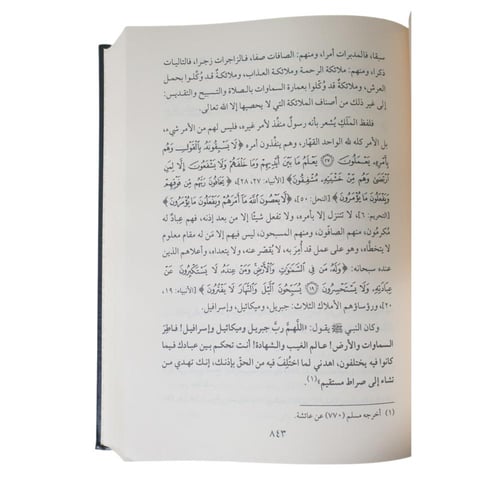 سبقا، فالمدبرات أمرا، ومنهم: الصافات صفا، فالزاجرات زجرا، فالتاليات
ذكرا، ومنهم: ملائكة الرحمة وملائكة العذاب، وملائكة قد وُكّلوا بحمل
العرش، وملائكة قد وُكّلوا بعمارة السماوات بالصلاة والتسبيح والتقديس:
إلى غير ذلك من أصناف الملائكة التي لا يحصيها إلا الله تعالى.
فلفظ المَلَك يُشعر بأنه رسولٌ منفذ لأمر غيره، فليس لهم من الأمر شيء،
بل الأمر كله لله الواحد القهّار، وهم ينفّذون أمره ﴿لَا يَسْبِقُونَهُ بِالْقَوْلِ وَهُم
بِأَمْرِهِ يَعْمَلُونَ ﴿٢٧﴾ يَعْلَمُ مَا بَيْنَ أَيْدِيهِمْ وَمَا خَلْفَهُمْ وَلَا يَشْفَعُونَ إِلَّا لِمَنِ
ارْتَضَىٰ وَهُم مِّنْ خَشْيَتِهِ مُشْفِقُونَ﴾ [الأنبياء: ٢٧، ٢٨]، ﴿يَخَافُونَ رَبَّهُم مِّن فَوْقِهِمْ
وَيَفْعَلُونَ مَا يُؤْمَرُونَ﴾ [النحل: ٥٠]، ﴿لَّا يَعْصُونَ اللَّهَ مَا أَمَرَهُمْ وَيَفْعَلُونَ مَا يُؤْمَرُونَ﴾
[التحريم: ٦]، لا تتنزل إلا بأمره، ولا تفعل شيئًا إلا من بعد إذنه، فهم عِبادٌ له
مُكرمُون، منهم الصافّون، ومنهم المسبحون، ليس فيهم إلا مَن له مقام معلوم
لا يتخطَّاه، وهو على عمل قد أُمِرَ به، لا يُقصّر عنه، ولا يتعداه، وأعلاهم الذين
عنده سبحانه: ﴿وَلَهُ مَن فِي السَّمَاوَاتِ وَالْأَرْضِ وَمَنْ عِندَهُ لَا يَسْتَكْبِرُونَ عَنْ
عِبَادَتِهِ وَلَا يَسْتَحْسِرُونَ ﴿١٩﴾ يُسَبِّحُونَ اللَّيْلَ وَالنَّهَارَ لَا يَفْتُرُونَ﴾ [الأنبياء: ١٩،
٢٠]، ورؤساؤهم الأملاك الثلاث: جبريل، وميكائيل، وإسرافيل.
وكان النبي ﷺ يقول: «اللَّهمَّ ربَّ جبريل وميكائيل وإسرافيل! فاطِرَ
السماوات والأرض! عالم الغيب والشهادة! أنت تحكم بين عبادك فيما
كانوا فيه يختلفون، اهدني لما اختُلِفَ فيه من الحقّ بإذنك، إنك تهدي من
تشاء إلى صراط مستقيم»(١).
(١) أخرجه مسلم (٧٧٠) عن عائشة.
٨٤٣